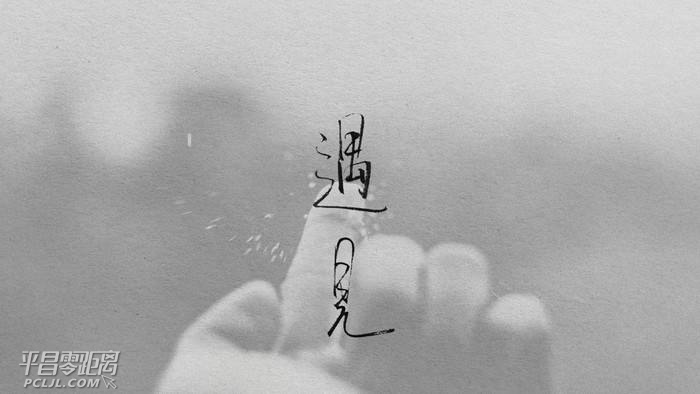 遇
見
平昌零距离
PCLJL.COM